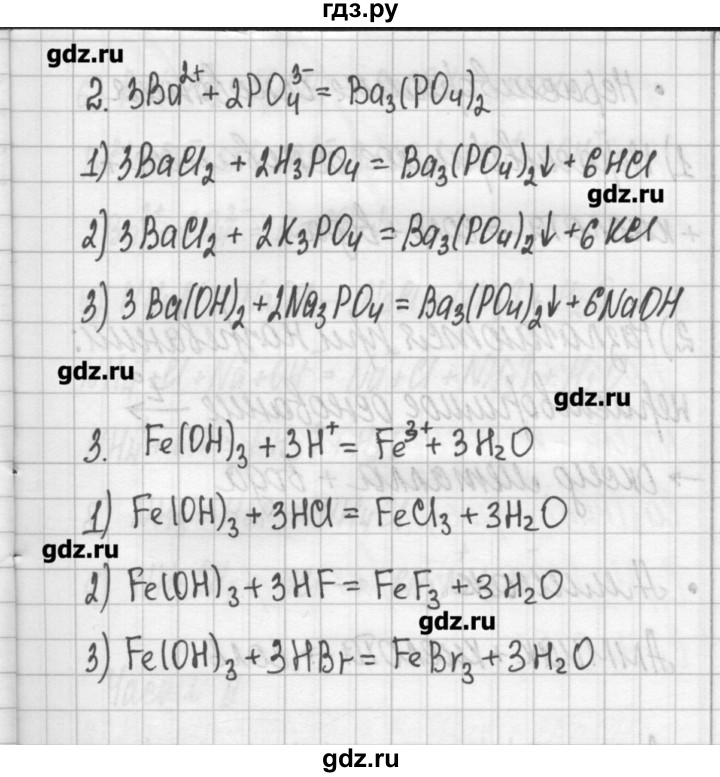 гдз.ру
gdz.ru
2. 3Ba²⁺ + 2PO₄³⁻ = Ba₃(PO₄)₂
1) 3BaCl₂ + 2H₃PO₄ = Ba₃(PO₄)₂↓ + 6HCl
gdz.ru
2) 3BaCl₂ + 2K₃PO₄ = Ba₃(PO₄)₂↓ + 6KCl
3) 3Ba(OH)₂ + 2Na₃PO₄ = Ba₃(PO₄)₂↓ + 6NaOH
gdz.ru
gdz.ru
3. Fe(OH)₃ + 3H⁺ = Fe³⁺ + 3H₂O
1) Fe(OH)₃ + 3HCl = FeCl₃ + 3H₂O
gdz.ru
2) Fe(OH)₃ + 3HF = FeF₃ + 3H₂O
gdz.ru
3) Fe(OH)₃ + 3HBr = FeBr₃ + 3H₂O
gdz.ru